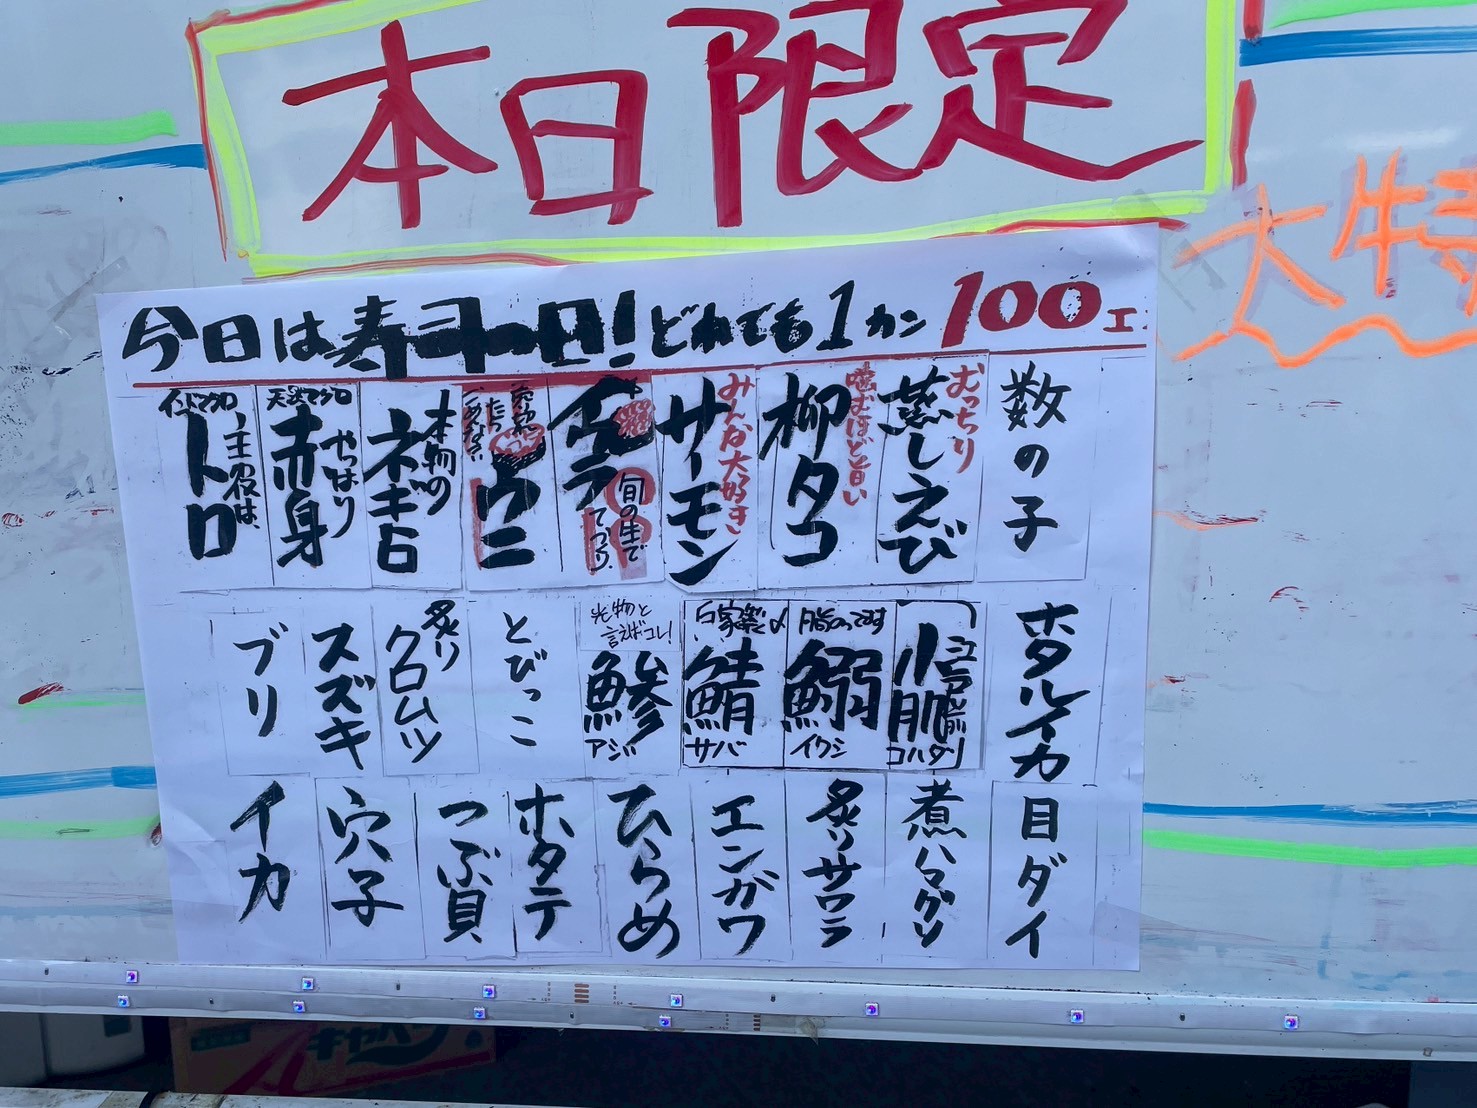 本日限定
大生特
今日は寿司の日!どれでも1カン100エ
数の子
むっちり
蒸しえび
噛むほど旨い
柳タコ
みんな大好き
サーモン
イクラ
旬の生で
ウニ
本物の
ネギトロ
天然マグロ
やっぱり
赤身
インドマグロ
主の役は、
トロ
ホタルイカ
江戸前
小肌
コハダ
脂のってます
鰯
イワシ
自家製〆
鯖
サバ
光物と
言えばコレ!
鯵
アジ
とびっこ
炙り
クロムツ
スズキ
ブリ
目ダイ
煮ハマグリ
炙りサワラ
エンガワ
ひらめ
ホタテ
つぶ貝
穴子
イカ
キャベツ